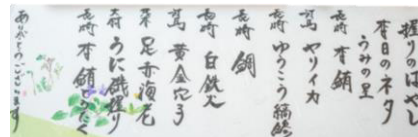 握りのはやし
本日のネタ
うみの里
長崎 本鮪
対馬 ヤリイカ
長崎 ゆうこう縞鯵
長崎 鯛
長崎 白鉄火
対馬 黄金穴子
足赤海老
うに磯握り
長崎 本鮪
ありがとうございます